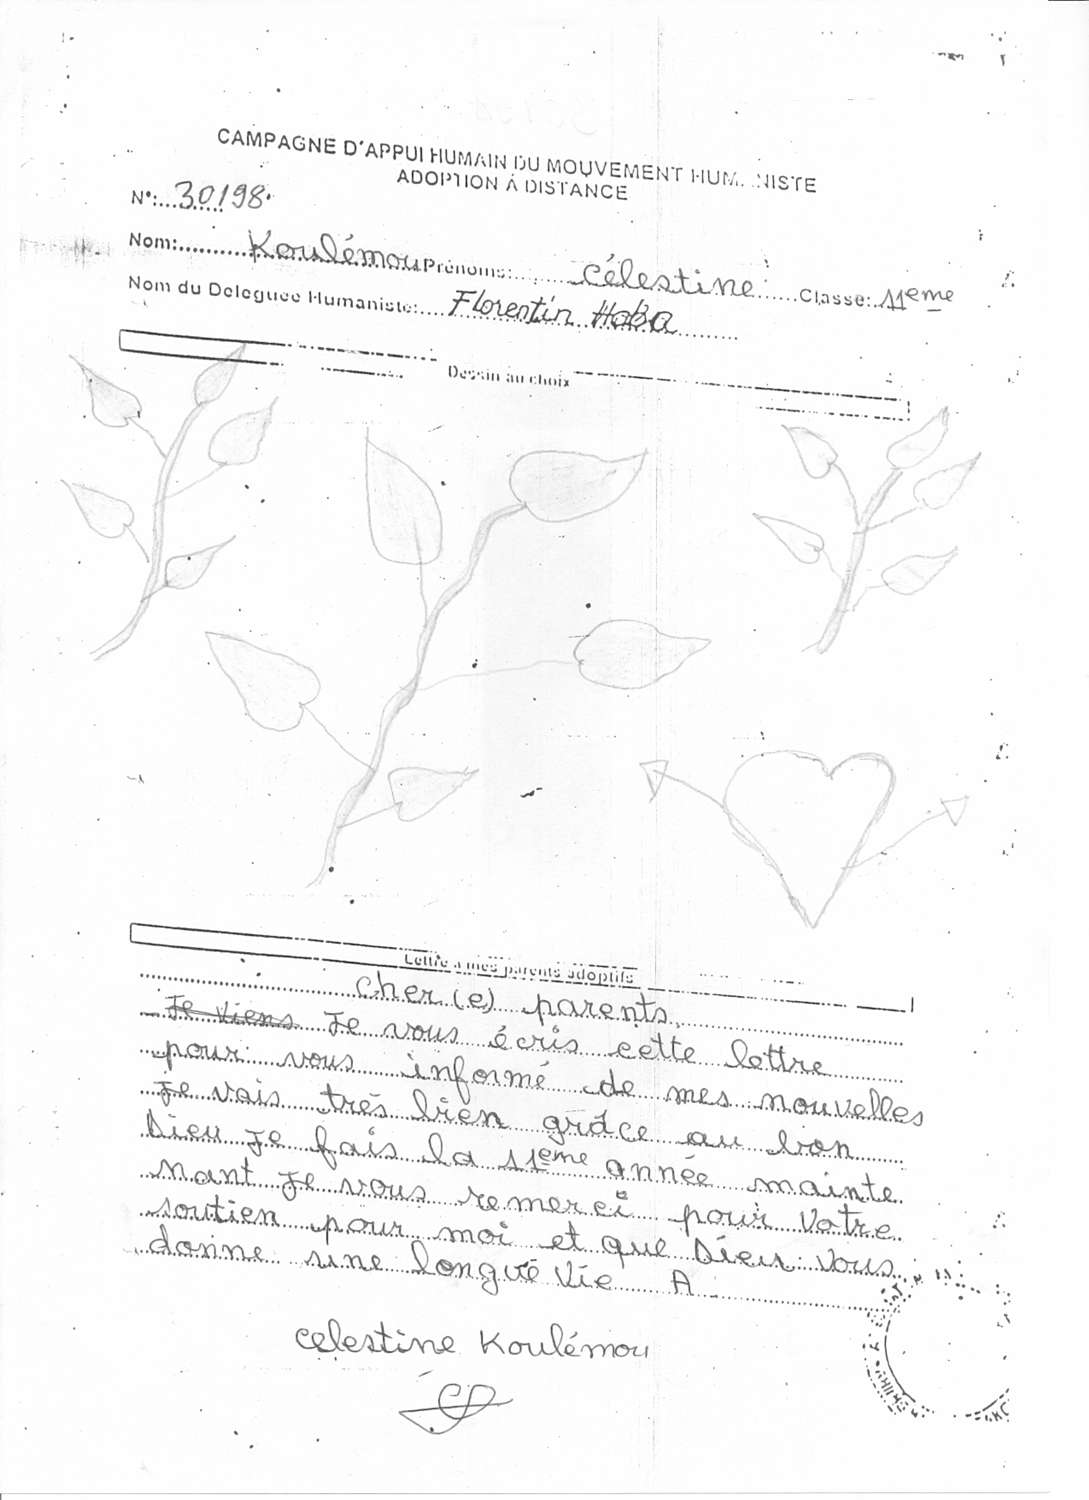 CAMPAGNE D'APPUI HUMAIN DU MOUVEMENT HUMANISTE
ADOPTION À DISTANCE
N°:...30198.
Nom:..........Koulémou Prénoms:......célestine.....Classe:.11eme
Nom du Deleguee Humaniste:....Florentin Haba........
Dessin au choix
Lettre a mes parents adoptifs
cher(e) parents
Je viens Je vous écris cette lettre
pour vous informé de mes nouvelles
Je vais très bien grâce au bon
Dieu Je fais la 11eme année mainte
nant Je vous remerci pour votre
soutien pour moi et que Dieu vous
donne une longue vie A
celestine Koulémou